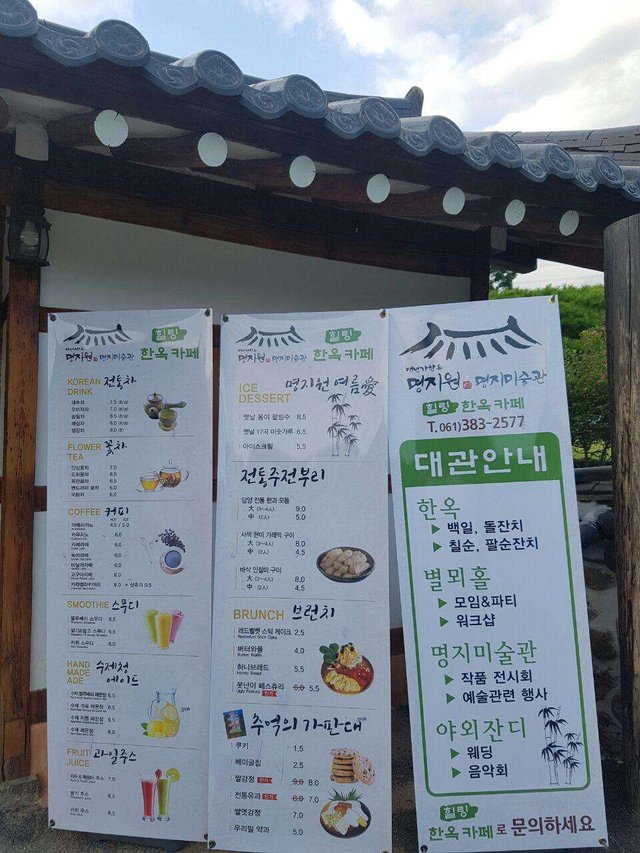 명지원 명지미술관
힐링
한옥 카페
KOREAN DRINK 전통차
대추차 7.5
오미자차 7.0
솔잎차 6.5
매실차 6.5
생강차 6.5
FLOWER TEA 꽃차
인삼꽃차 7.0
도화꽃차 6.5
목련꽃차 6.5
맨드라미 꽃차 6.0
국화차 6.0
COFFEE 커피
아메리카노 4.5 / 5.0
카푸치노 6.0
카페라떼 6.0
녹차라떼 6.0
바닐라라떼 6.0
고구마라떼 6.0
카라멜마키아또 6.0 + 샷추가 0.5
SMOOTHIE 스무디
블루베리 스무디 6.5
딸기&망고 스무디 6.5
키위 스무디 6.5
HAND MADE ADE 수제청 에이드
수제 레몬청 6.5
수제 자몽청 6.5
FRUIT JUICE 과일주스
딸기 주스 7.5
키위 주스 6.5
명지원 명지미술관
힐링
한옥 카페
ICE DESSERT 명지원 여름愛
옛날 옹이 팥빙수 8.5
옛날 17곡 미숫가루 6.5
아이스크림 5.5
전통주전부리
담양 전통 한과 모듬
大 (3~4人) 9.0
中 (2人) 5.0
사색 현미 가래떡 구이
大 (3~4人) 8.0
中 (2人) 4.5
바삭 인절미 구이
大 (3~4人) 8.0
中 (2人) 4.5
BRUNCH 브런치
레드벨벳 스틱 케이크 2.5
버터와플 4.0
허니브레드 5.5
못난이 페스츄리 6.0 5.5
추억의 가판대
쿠키 1.5
베이글칩 2.5
쌀강정 9.0 8.0
전통유과 8.0 7.0
쌀엿강정 2.0
우리밀 약과 5.0
명지원 명지미술관
힐링 한옥 카페
T. 061)383-2577
대관안내
한옥
▶ 백일, 돌잔치
▶ 칠순, 팔순잔치
별뫼홀
▶ 모임&파티
▶ 워크샵
명지미술관
▶ 작품 전시회
▶ 예술관련 행사
야외잔디
▶ 웨딩
▶ 음악회
힐링
한옥 카페로 문의하세요